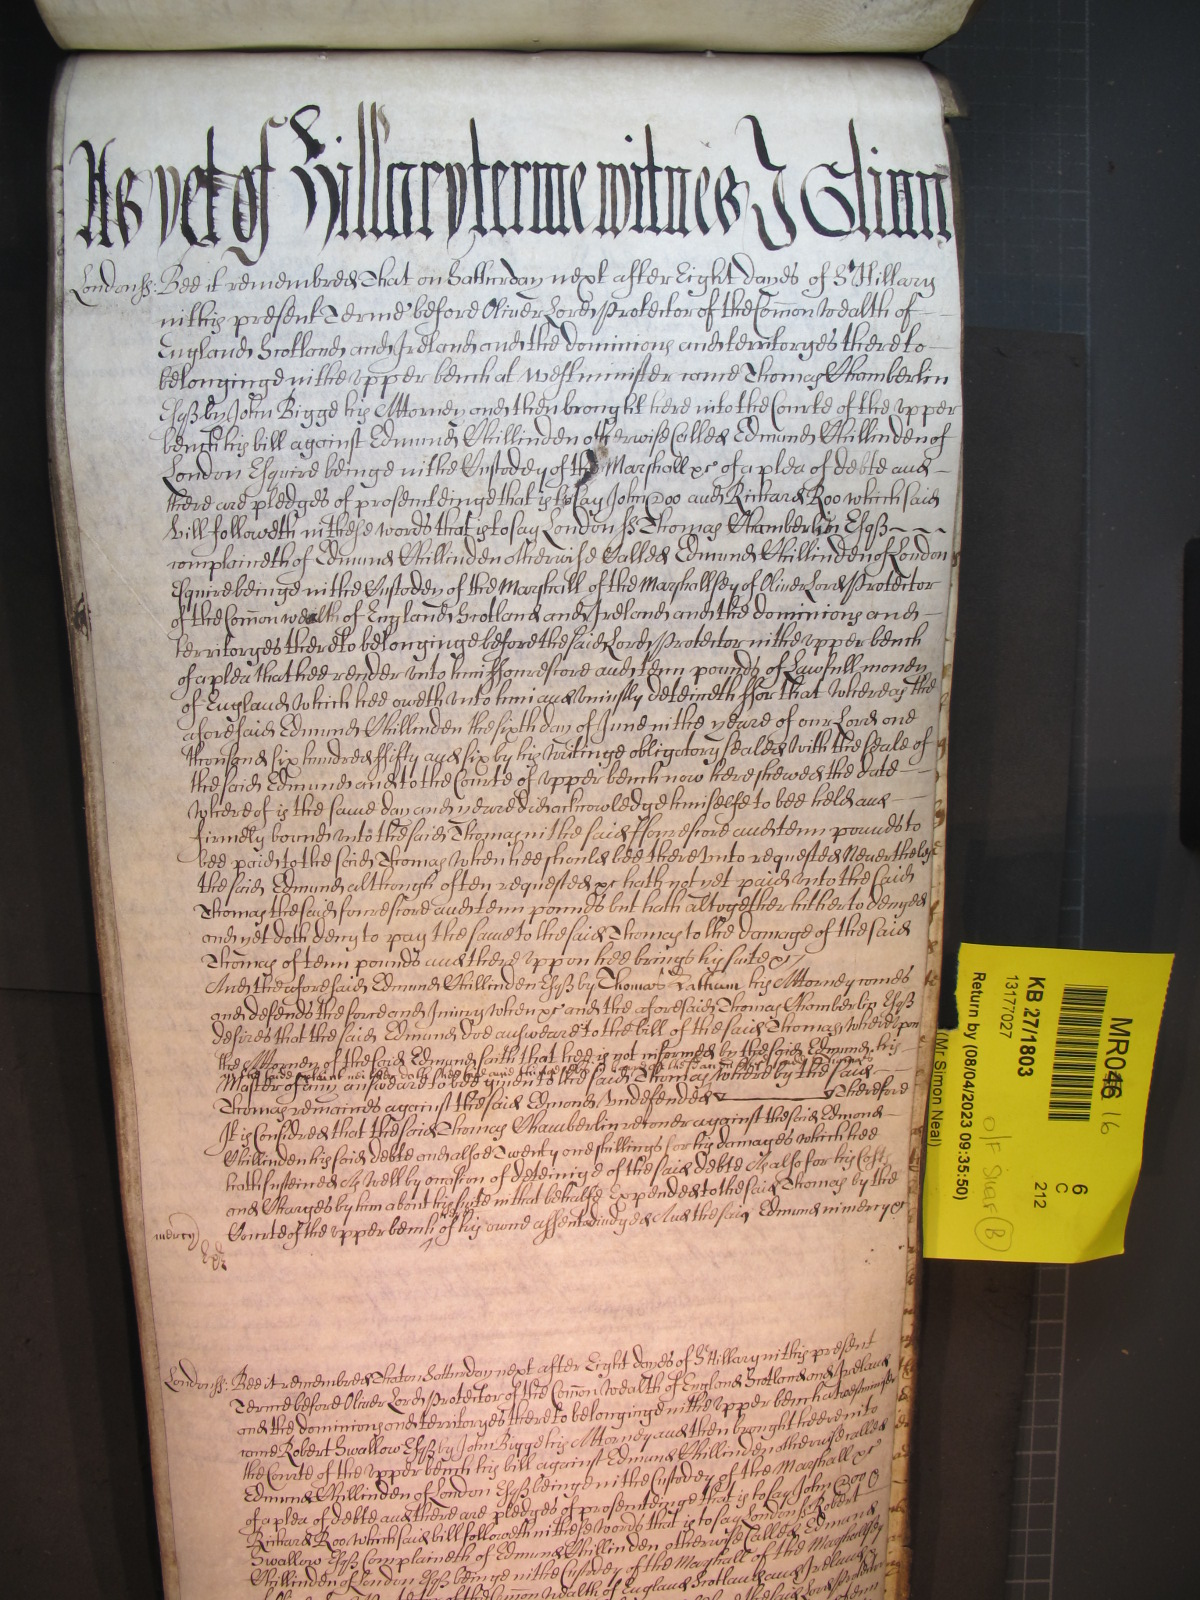 As yet of Hillary terme witnes J Glinn
London ss: Bee it remembred That on Satterday next after Eight dayes of St Hillary
in this present Terme before Oliver Lord Protector of the Comon Wealth of
England Scotland and Ireland and the dominions and territoryes thereto
belonginge in the upper bench at Westminister came Thomas Chamberlin
Esqr by John Bigge his Attorney and then brought here into the Courte of the upper
bench his bill against Edmund Chillinden otherwise Called Edmund Chillinden of
London Esquire beinge in the Custodey of the Marshall &c of a plea of debte and
there are pledges of prosecutinge that is to say John Doo and Richard Roo which said
bill followeth in these words that is to say London ss Thomas Chamberlin Esqr
complaineth of Edmund Chillinden otherwise Called Edmund Chillinden of London
Esquire beinge in the Custodey of the Marshall of the Marshallsey of Oliver Lord Protector
of the Comon wealth of England Scotland and Ireland and the dominions and
territoryes thereto belonginge before the said Lord Protector in the upper bench
of a plea that hee render unto him ffourescore and tenn pounds of Lawfull money
of England which hee oweth unto him and uniustly deteineth ffor that Whereas the
aforesaid Edmund Chillinden the sixth day of June in the yeare of our Lord one
thousand six hundred ffifty and six by his writinge obligatory sealed with the seale of
the said Edmund and to the Courte of upper bench now here shewed the date
whereof is the same day and yeare did acknowledge himselfe to bee held and
firmely bound unto the said Thomas in the said ffourescore and tenn pounds to
bee paid to the said Thomas when hee should bee there unto requested Neverthelesse
the said Edmund although often requested &c hath not yet paid unto the said
Thomas the said fourescore and tenn pounds but hath altogether hitherto denyed
and yet doth deny to pay the same to the said Thomas to the damage of the said
Thomas of tenn pounds and there uppon hee brings his suite &c
And the aforesaid Edmund Chillinden Esqr by Thomas Latham his Attorney comes
and defends the force and Iniury when &c and the aforesaid Thomas Chamberlin Esqr
desires that the said Edmund doe answeare to the bill of the said Thomas whereupon
the Attorney of the said Edmund saith that hee is not informed by the said Edmund his
Master of any answeare to bee given to the said Thomas whereby the said
Thomas remaines against the said Edmond Undefended Therefore
It is Considred that the said Thomas Chamberlin recover against the said Edmond
Chillinden his said debte and alsoe Twenty one shillings for his damages which hee
hath susteined As well by occasion of deteininge of the said debte As also for his Costs
and Charges by him about his suite in that behalfe Expended to the said Thomas by the
Courte of the upper bench of his owne assent adiudged And the said Edmund in mercy &c
mercy
London ss: Bee it remembred That on Satterday next after Eight dayes of St Hillary in this present
Terme before Oliver Lord Protector of the Comon Wealth of England Scotland and Ireland
and the dominions and territoryes thereto belonginge in the upper bench at westminster
came Robert Swallow Esqr by John Bigge his Attorney and then brought heere into
the Courte of the upper bench his bill against Edmund Chillinden otherwise called
Edmund Chillinden of London Esqr beinge in the Custodey of the Marshall &c
of a plea of debte and there are pledges of prosecutinge that is to say John Doo &
Richard Roo which said bill followeth in these words that is to say London ss Robert
Swallow Esqr Complaineth of Edmund Chillinden otherwise Called Edmund
Chillinden of London Esqr beinge in the Custodey of the Marshall of the Marshallsey
MR046 16
KB 27/1803
13177027
Return by (08/04/2023 09:35:50)
(Mr Simon Neal)
6
C
212
O/F Shelf B